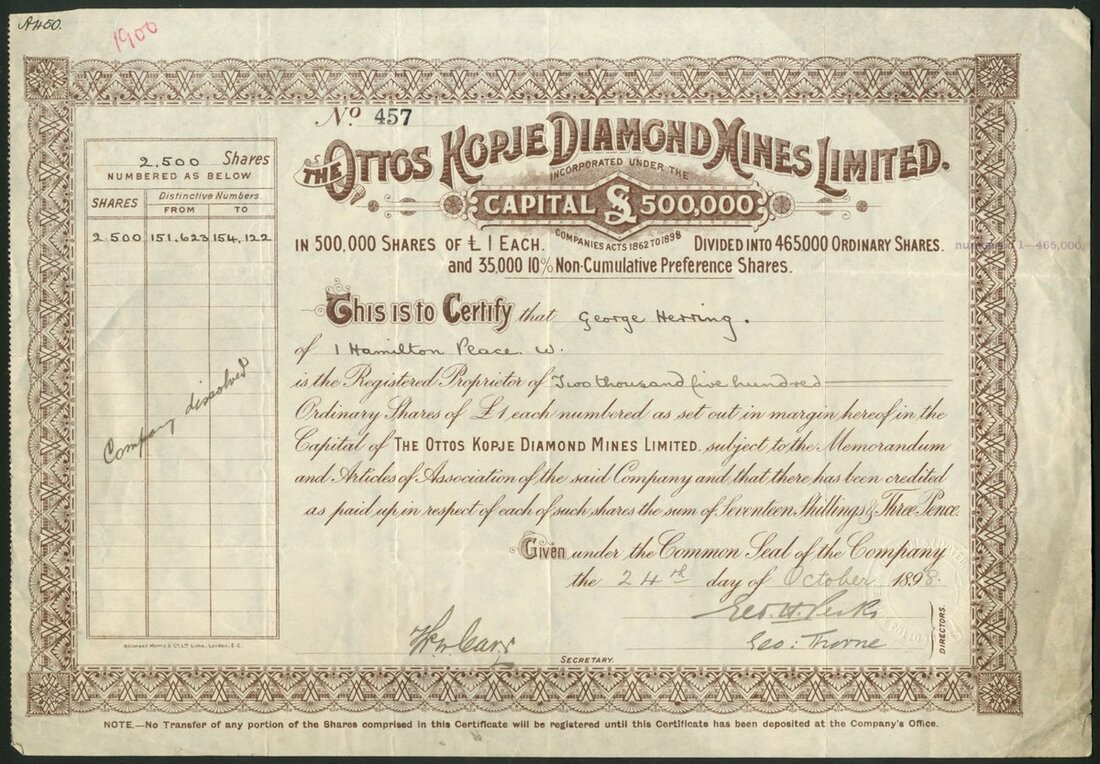 A450.
1900
No 457
THE OTTOS KOPJE DIAMOND MINES LIMITED.
INCORPORATED UNDER THE
CAPITAL £ 500,000
COMPANIES ACTS 1862 TO 1898
IN 500,000 SHARES OF £1 EACH. DIVIDED INTO 465000 ORDINARY SHARES. numbered 1—465,000
and 35,000 10% NON-CUMULATIVE PREFERENCE SHARES.
2,500 Shares
NUMBERED AS BELOW
SHARES Distinctive Numbers.
FROM TO
2500 151,623 154,122
Company dissolved
This is to Certify that George Herring.
of 1 Hamilton Place. W.
is the Registered Proprietor of Two thousand five hundred
Ordinary Shares of £1 each numbered as set out in margin hereof in the
Capital of THE OTTOS KOPJE DIAMOND MINES LIMITED. subject to the Memorandum
and Articles of Association of the said Company and that there has been credited
as paid up in respect of each of such shares the sum of Seventeen Shillings & Three Pence.
Given under the Common Seal of the Company
the 24th day of October 1898.
Geo. H. Perks
Geo: Thorne
DIRECTORS.
SECRETARY.
NOTE.—No Transfer of any portion of the Shares comprised in this Certificate will be registered until this Certificate has been deposited at the Company's Office.